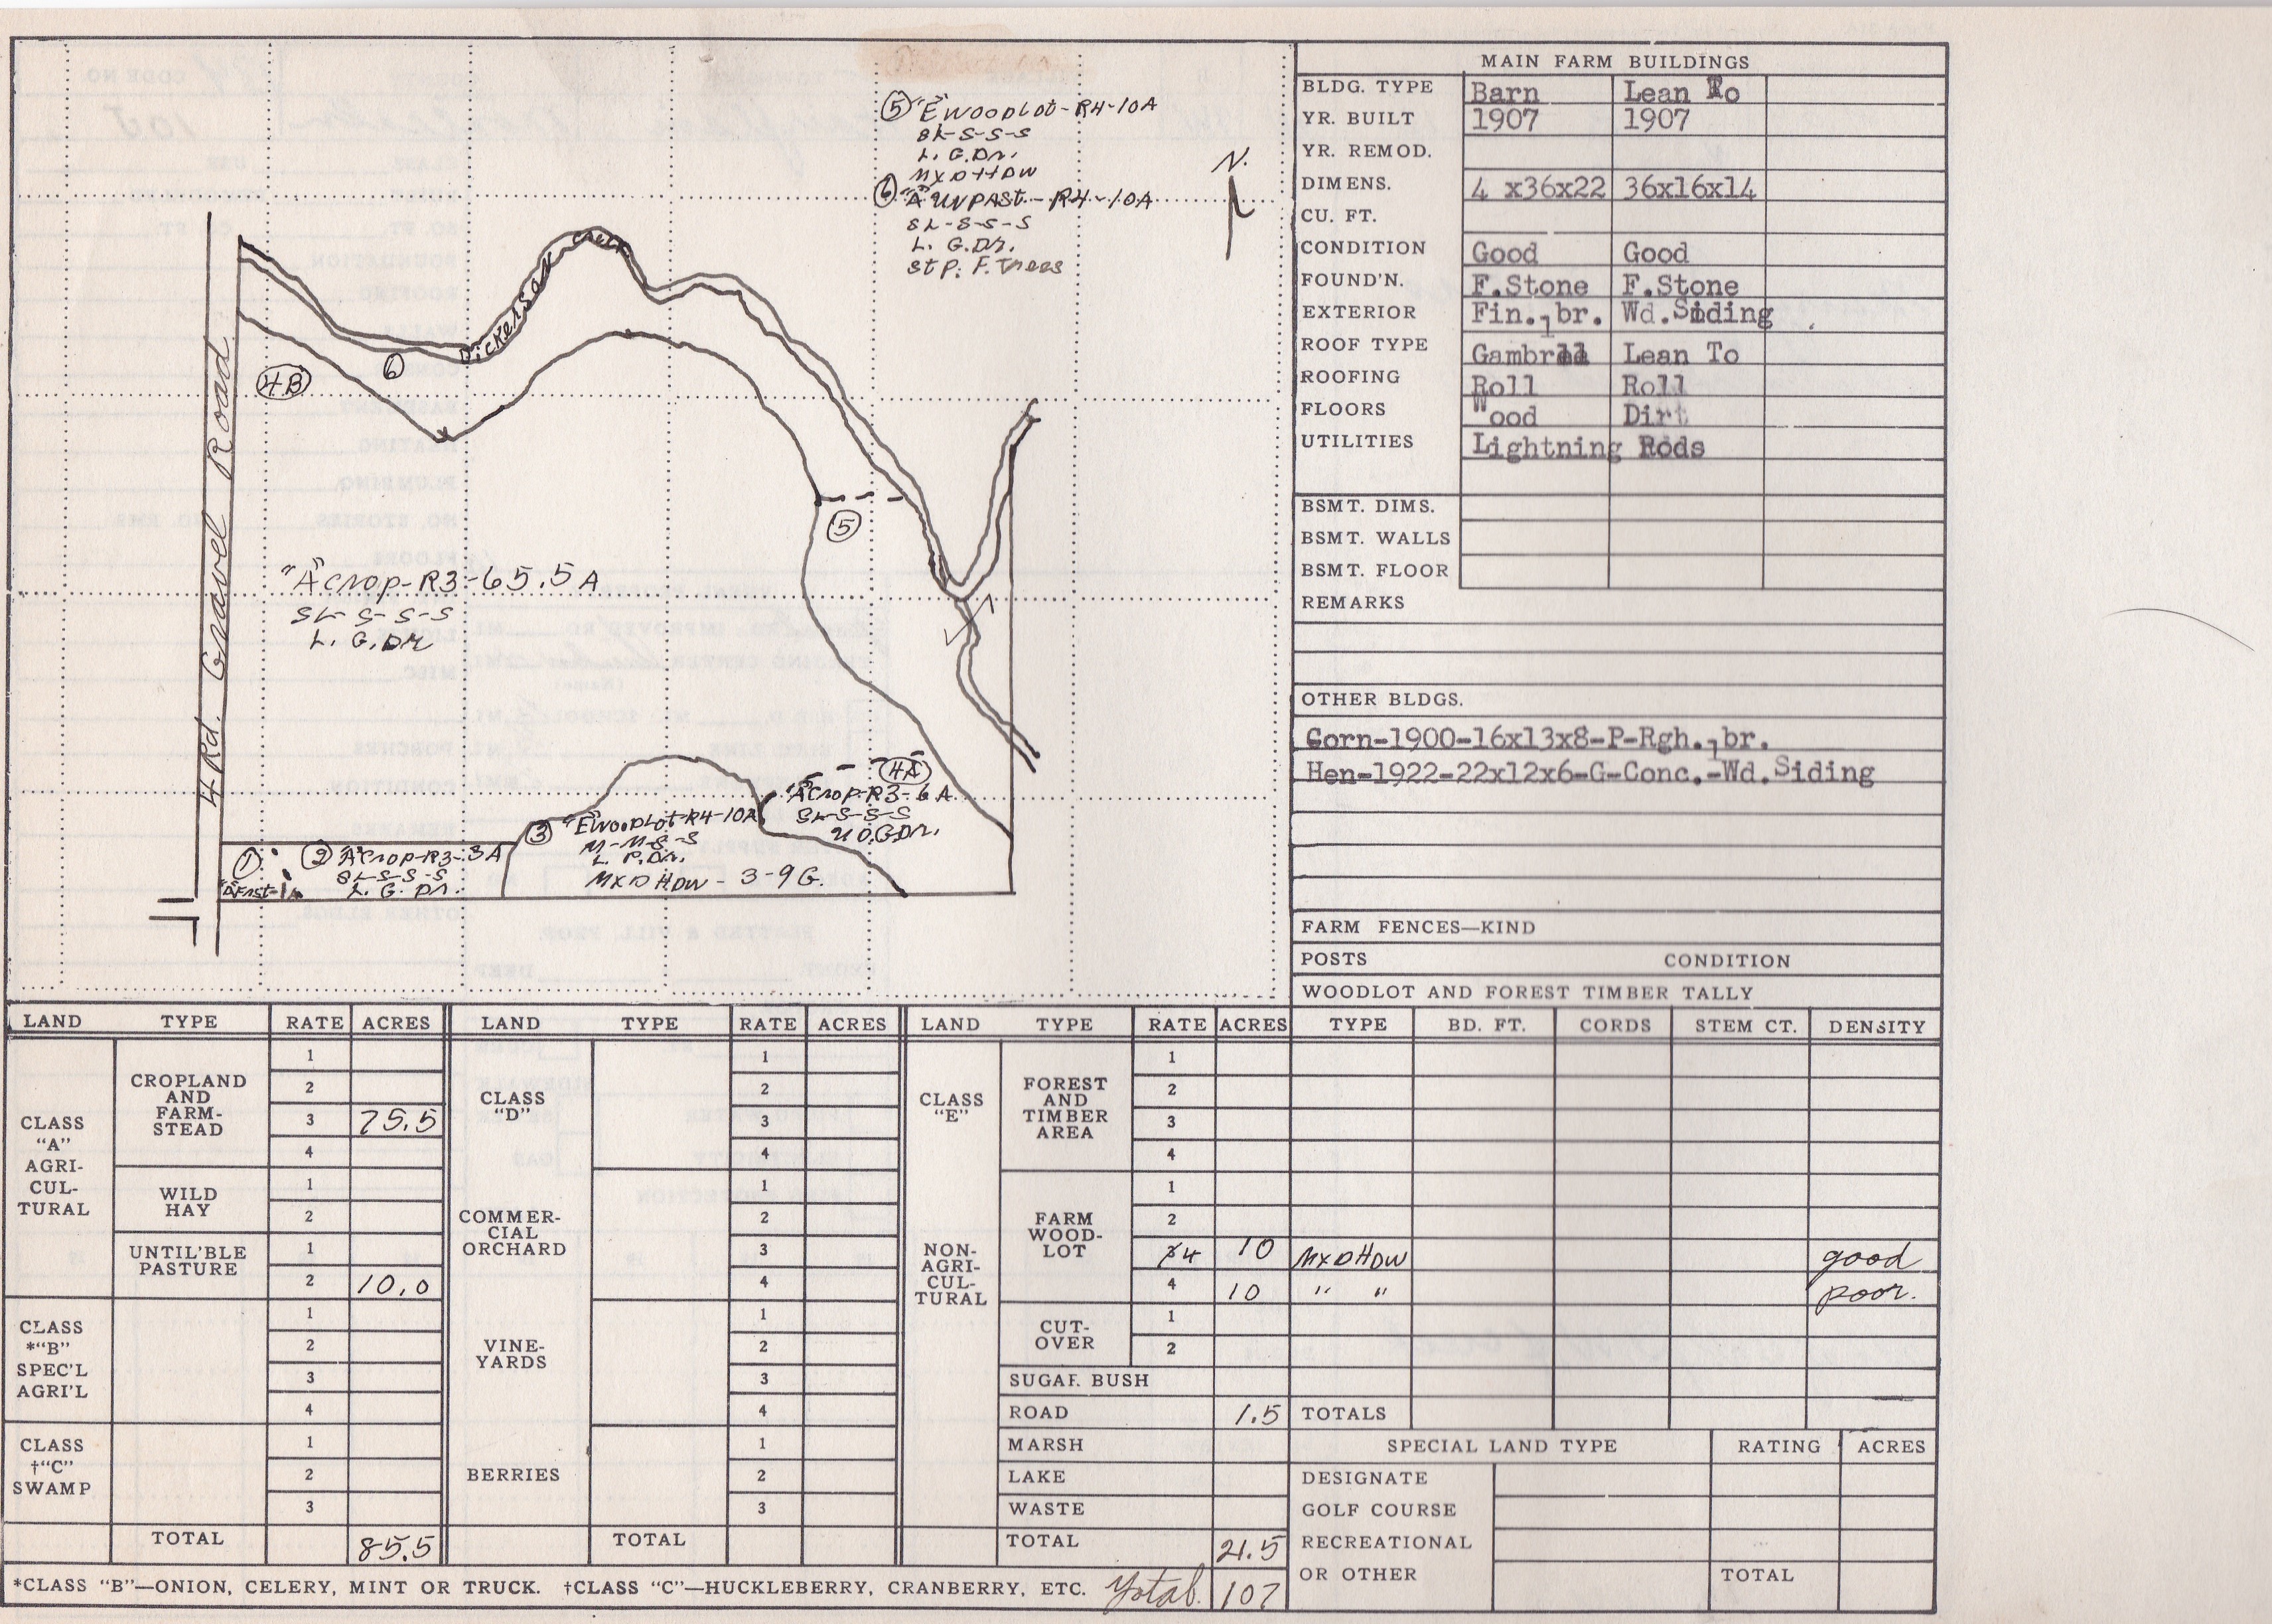 ⑤ "E" WOODLOT-R4-10A
SL-S-S-S
L. G.Dr.
MXD HDW
⑥ "A" UNPAST.-R4-10A
SL-S-S-S
L. G.Dr.
St P. F. Trees
N.
Dickerson Creek
4B
⑥
4 Rd. Gravel Road
⑤
"A" crop-R3-65.5A
SL-S-S-S
L. G.Dr
4A
"A" crop-R3-6A
SL-S-S-S
U O.G.Dr.
③ "E" WOODLOT-R4-10A
M-M-S-S
L P.Dr.
MXD HDW - 3-9 G.
① ② "A" Crop-R3-3A
SL-S-S-S
L. G. Dr.
MAIN FARM BUILDINGS
BLDG. TYPE Barn Lean To
YR. BUILT 1907 1907
YR. REMOD.
DIMENS. 4 x36x22 36x16x14
CU. FT.
CONDITION Good Good
FOUND'N. F.Stone F.Stone
EXTERIOR Fin.,br. Wd.Siding
ROOF TYPE Gambrel Lean To
ROOFING Roll Roll
FLOORS Wood Dirt
UTILITIES Lightning Rods
BSMT. DIMS.
BSMT. WALLS
BSMT. FLOOR
REMARKS
OTHER BLDGS.
Corn-1900-16x13x8-P-Rgh.,br.
Hen-1922-22x12x6-G-Conc.-Wd.Siding
FARM FENCES—KIND
POSTS CONDITION
WOODLOT AND FOREST TIMBER TALLY
LAND TYPE RATE ACRES LAND TYPE RATE ACRES LAND TYPE RATE ACRES TYPE BD. FT. CORDS STEM CT. DENSITY
CLASS "A" AGRI-CUL-TURAL
CROPLAND AND FARM-STEAD
1
2
3 75.5
4
WILD HAY
1
2
UNTIL'BLE PASTURE
1
2 10.0
CLASS *"B" SPEC'L AGRI'L
1
2
3
4
CLASS †"C" SWAMP
1
2
3
TOTAL 85.5
CLASS "D"
1
2
3
4
COMMER-CIAL ORCHARD
1
2
3
4
VINE-YARDS
1
2
3
4
BERRIES
1
2
3
TOTAL
CLASS "E"
NON-AGRI-CUL-TURAL
FOREST AND TIMBER AREA
1
2
3
4
FARM WOOD-LOT
1
2
4 10 MXD HDW good
4 10 " " poor.
CUT-OVER
1
2
SUGAR BUSH
ROAD 1.5 TOTALS
MARSH
LAKE
WASTE
TOTAL 21.5
SPECIAL LAND TYPE RATING ACRES
DESIGNATE
GOLF COURSE
RECREATIONAL
OR OTHER TOTAL
*CLASS "B"—ONION, CELERY, MINT OR TRUCK. †CLASS "C"—HUCKLEBERRY, CRANBERRY, ETC. Total. 107